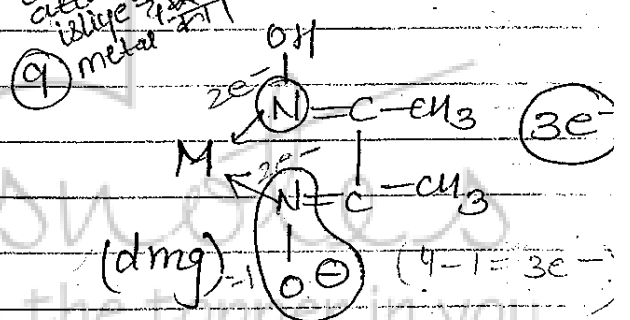 isliye
metal
9
OH
2e-
N=C-CH3
3e-
M
2e-
N=C-CH3
(dmg)-1
O⊖
(4-1=3e-)